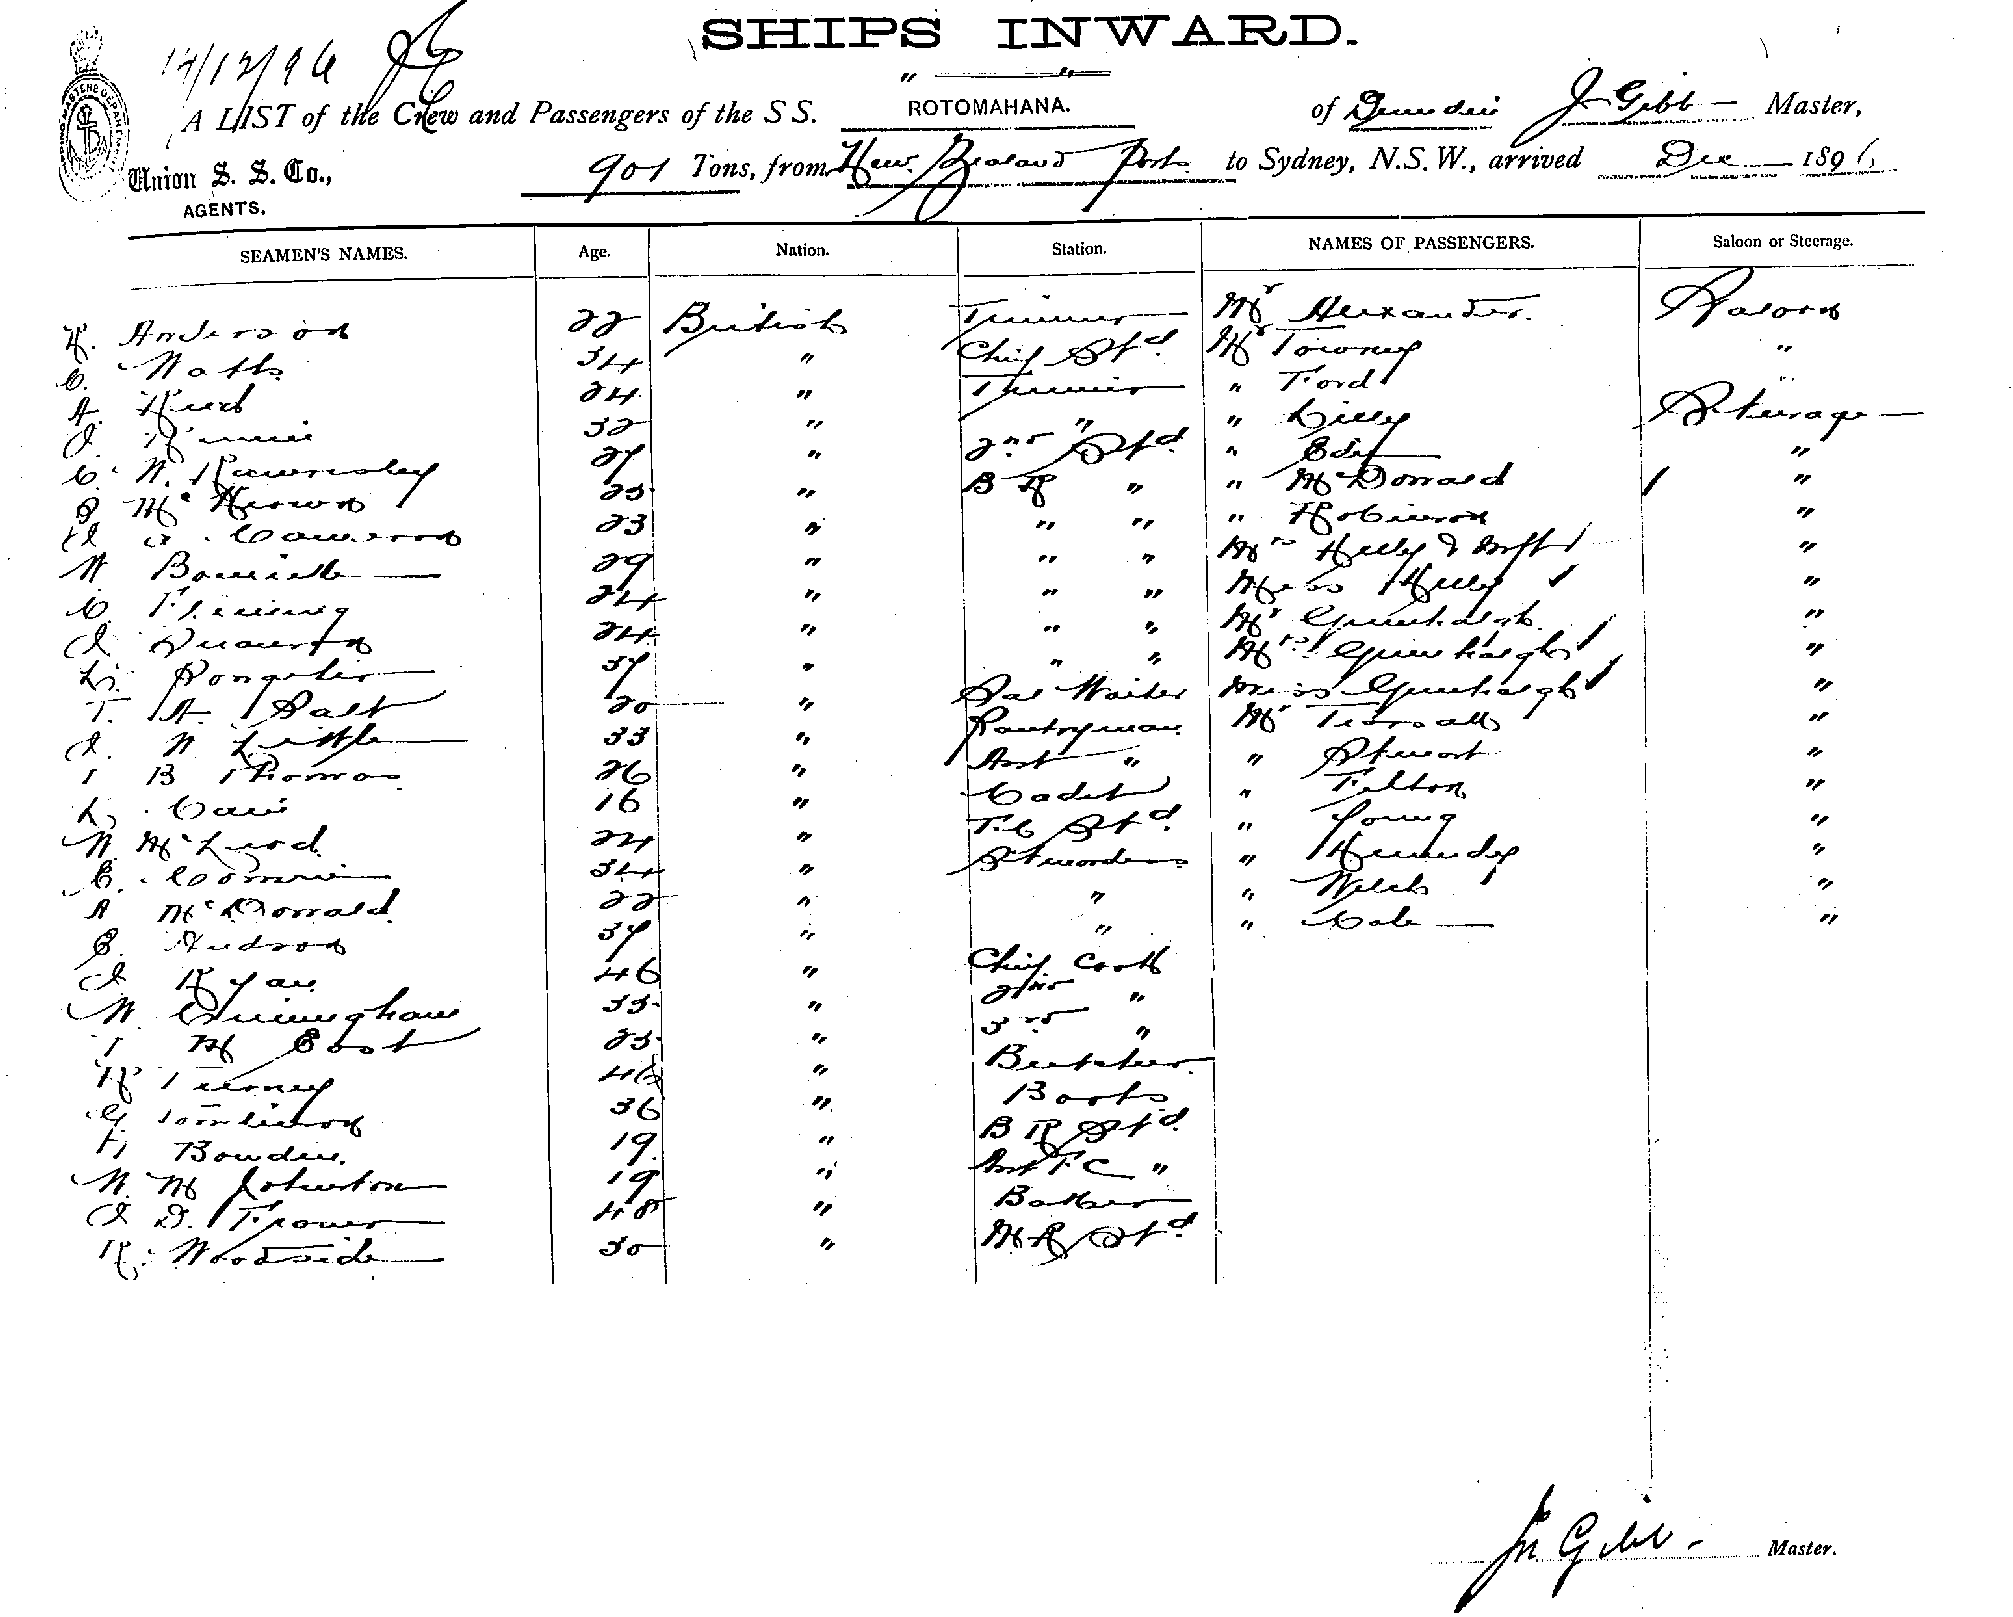 SHIPS INWARD.
17/12/96
A LIST of the Crew and Passengers of the S S. ROTOMAHANA. of Dunedin Jn Gibb Master,
901 Tons, from New Zealand Ports to Sydney, N.S.W., arrived Dec 1896
Union S. S. Co.,
AGENTS.
SEAMEN'S NAMES. Age. Nation. Station. NAMES OF PASSENGERS. Saloon or Steerage.
Anderson 22 British Trimmer Mr Alexander. Saloon
C. Watts 34 " Chief Std. Mr Towney "
A. 24 " Trimmer " Ford "
J. 32 " " " Lilly Steerage
C. W. Rawnsley 27 " 2nd Std " Edy "
McKeown 25 " B R " " McDonald "
Cameron 23 " " " " Robinson "
W 29 " " " Mrs Kelly & Inft "
C. Fleming 24 " " " Miss Kelly "
J. 24 " " " Mr Greenhalgh "
37 " " " Mrs Greenhalgh "
T. A. Salt 20 " Sal Waiter Miss Greenhalgh "
J. W Little 33 " Pantryman Mr "
J B Thomas 26 " Asst " " Stewart "
16 " Cadet " Felton "
W. McLeod 24 " F.C Std. " Young "
C. 34 " Stewardess " Kennedy "
A McDonald 22 " " " Welch "
E. Hudson 37 " " " Cole "
J Ryan 46 " Chief Cook
W. Cunningham 33 " 2nd "
J M East 25 " 3rd "
Tierney 46 " Butcher
G Tomlinson 36 " Boots
H Bowden. 19 " B R Std.
W. M Johnston 19 " Asst F C "
J D. 48 " Baker
R. Woodside 30 " M R Std
Jn Gibb. Master.